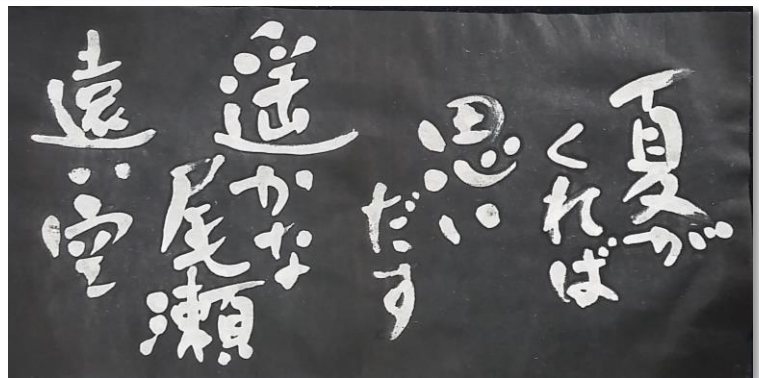 夏が
くれば
思い
だす
遥かな
尾瀬
遠い空